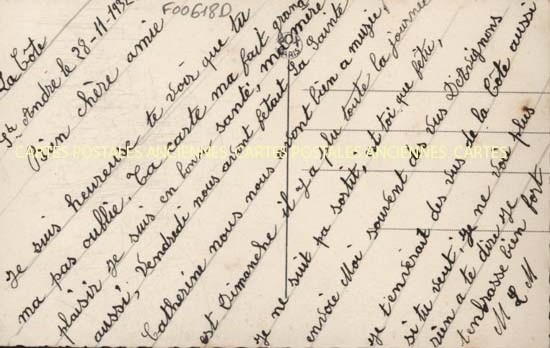 F00618D
La Côte
St André le 28-11-1932
Mien chère amie
Je suis heureuse de voir que tu
ma pas oublié. Ta carte ma fait grand
plaisir je suis en bonne santé, ma mère
aussi, Vendredi nous avont fétait la Sainte
Catherine nous nous avont bien amuzié,
et Dimanche il y a plu toute la journée
je ne suit pa sortit, et toi que fête,
envoie Moi souvent de vus
je t'enverait des vue de la Côte aussi
si tu veut. Je ne voi plus
rien a te dire je
t'enbrasse bien fort
M L M
CARTES POSTALES ANCIENNES CARTES POSTALES ANCIENNES CARTES